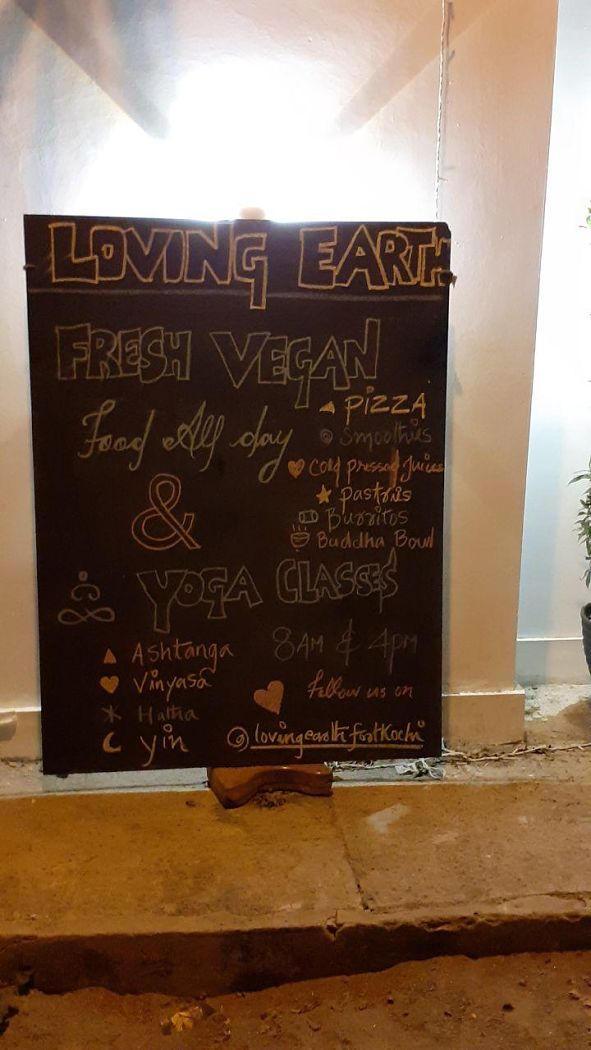 LOVING EARTH
FRESH VEGAN
Food All day
PIZZA
Smoothies
Cold pressed Juices
Pastries
Burritos
Buddha Bowl
&
YOGA CLASSES
8AM & 4PM
Ashtanga
Vinyasa
Hatha
Yin
Follow us on
@lovingearthfortkochi